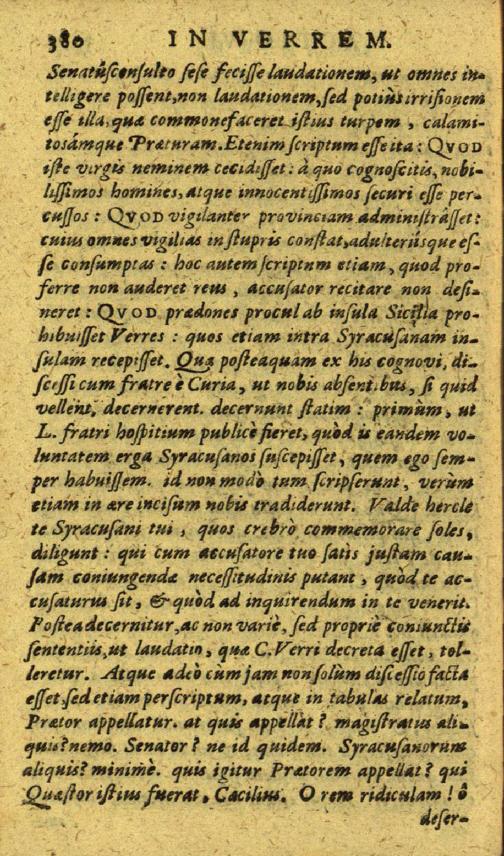 380 IN VERREM.
Senatúsconsulto sese fecisse laudationem, ut omnes in-
telligere possent, non laudationem, sed potiùs irrisionem
esse illa, quæ commonefaceret istius turpem, calami-
tosámque Præturam. Etenim scriptum esse ita: QVOD
iste virgis neminem cecidisset: à quo cognoscitis, nobi-
lissimos homines, atque innocentissimos securi esse per-
cussos: QVOD vigilanter provinciam administrâsset:
cuius omnes vigilias in stupris constat, adulteriisque es-
se consumptas: hoc autem scriptum etiam, quod pro-
ferre non auderet reus, accusator recitare non desi-
neret: QVOD prædones procul ab insula Sicilia pro-
hibuisset Verres: quos etiam intra Syracusanam in-
sulam recepisset. Quæ posteaquàm ex his cognovi, di-
scessi cum fratre è Curia, ut nobis absentibus, si quid
vellent, decernerent. decernunt statim: primum, ut
L. fratri hospitium publicè fieret, quòd is eandem vo-
luntatem erga Syracusanos suscepisset, quem ego sem-
per habuissem. id non modò tum scripserunt, verùm
etiam in ære incisum nobis tradiderunt. Valde hercle
te Syracusani tui, quos crebrò commemorare soles,
diligunt: qui cum accusatore tuo satis justam cau-
sam coniungendæ necessitudinis putant, quòd te ac-
cusaturus sit, & quòd ad inquirendum in te venerit.
Postea decernitur, ac non variè, sed propriè coniunctis
sententiis, ut laudatio, quæ C. Verri decreta esset, tol-
leretur. Atque adeò cum jam non solùm discessio facta
esset, sed etiam perscriptum, atque in tabulas relatum,
Prætor appellatur. at quis appellat? magistratus ali-
quis? nemo. Senator? ne id quidem. Syracusanorum
aliquis? minimè. quis igitur Prætorem appellat? qui
Quæstor istius fuerat, Cæcilius. O rem ridiculam! ô
deser-